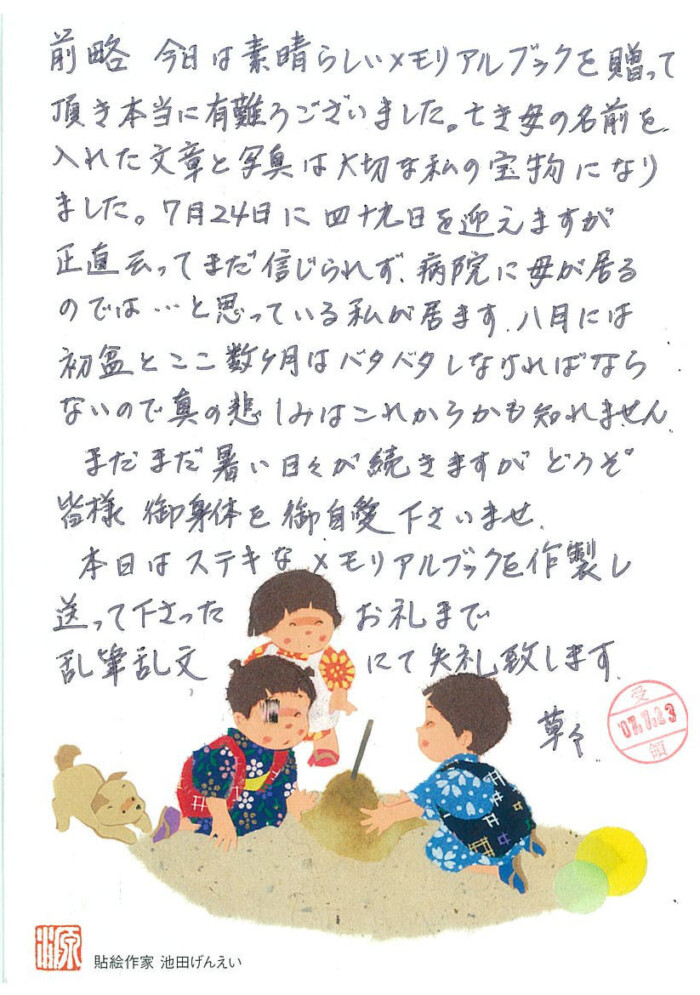 前略 今日は素晴らしいメモリアルブックを贈って
頂き本当に有難うございました。亡き母の名前を
入れた文章と写真は大切な私の宝物になり
ました。7月24日に四十九日を迎えますが
正直云ってまだ信じられず、病院に母が居る
のでは…と思っている私が居ます。八月には
初盆とここ数ケ月はバタバタしなければなら
ないので真の悲しみはこれからかも知れません。
まだまだ暑い日々が続きますがどうぞ
皆様御身体を御自愛下さいませ。
本日はステキなメモリアルブックを作製し
送って下さった お礼まで
乱筆乱文 にて失礼致します。
草々
受
07.7.23
源
貼絵作家 池田げんえい